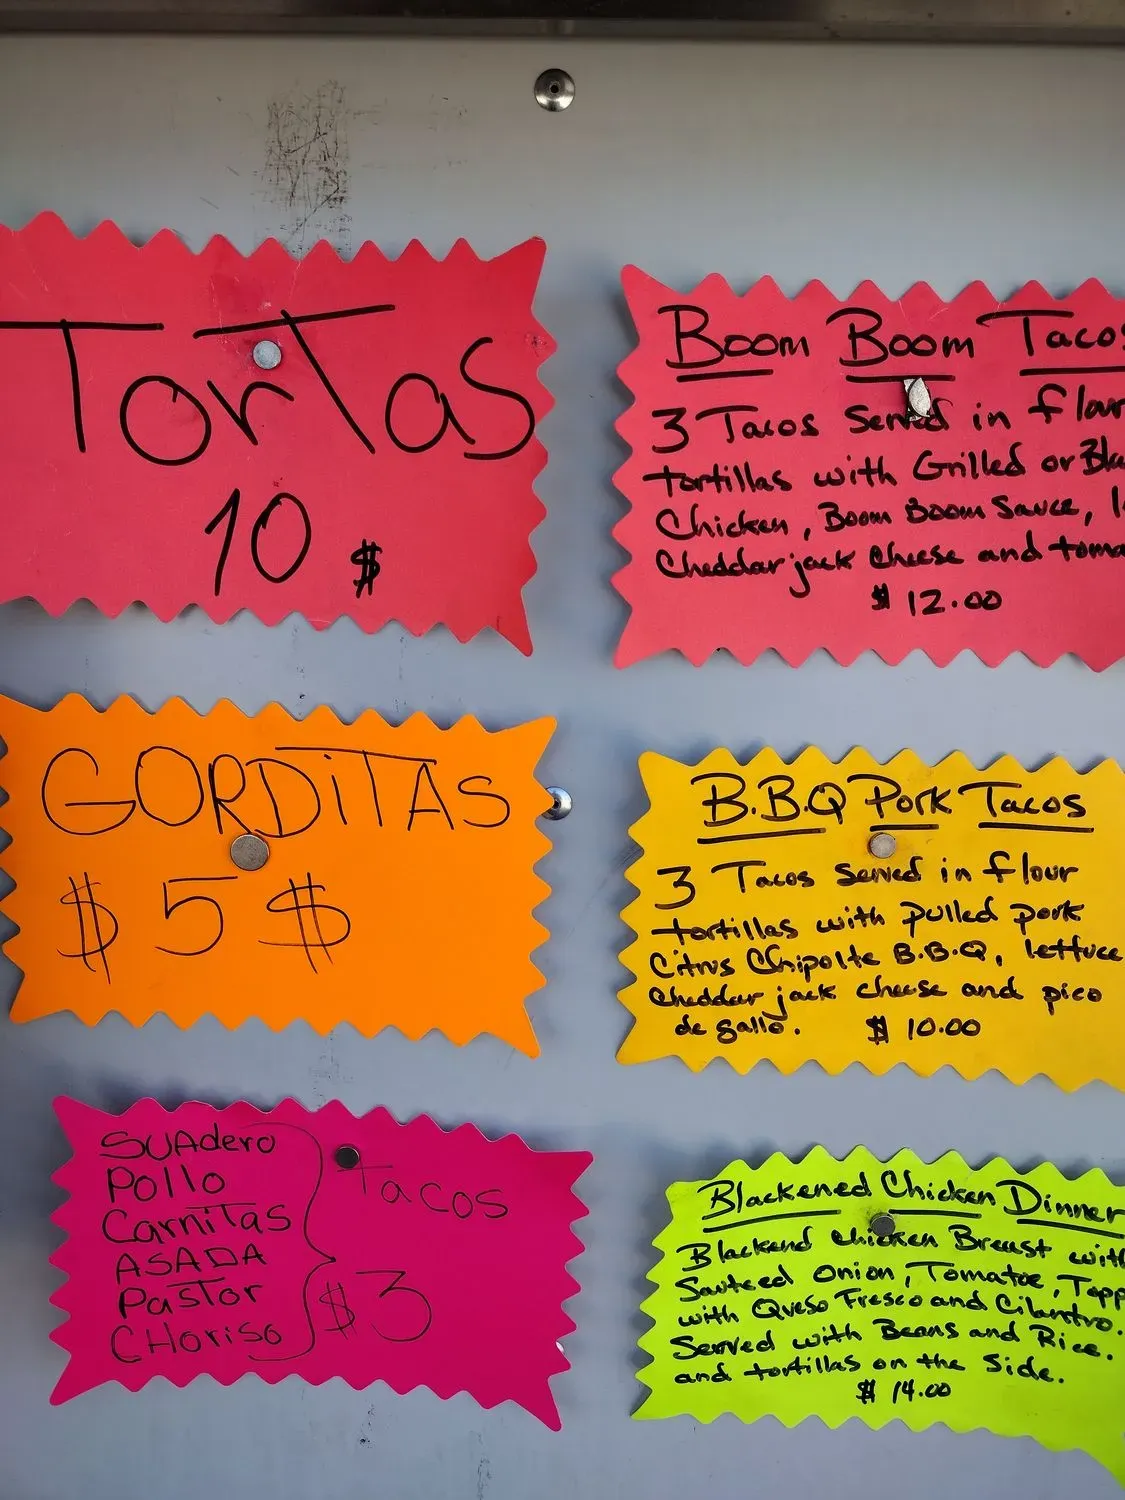 TorTas
10 $
Boom Boom Tacos
3 Tacos Served in flour
tortillas with Grilled or
Chicken, Boom Boom Sauce,
Cheddar jack cheese and
$ 12.00
GORDiTAS
$ 5 $
B.B.Q Pork Tacos
3 Tacos Served in flour
tortillas with pulled pork
Citrus Chipolte B.B.Q, lettuce
cheddar jack cheese and pico
de gallo. $ 10.00
SUAdero
Pollo
CarniTas
ASADA
PasTor
CHoriso
Tacos
$3
Blackened Chicken Dinner
Blackend chicken Breast with
Sauteed onion, Tomatoe,
with Queso Fresco and Cilantro.
Served with Beans and Rice.
and tortillas on the side.
$ 14.00